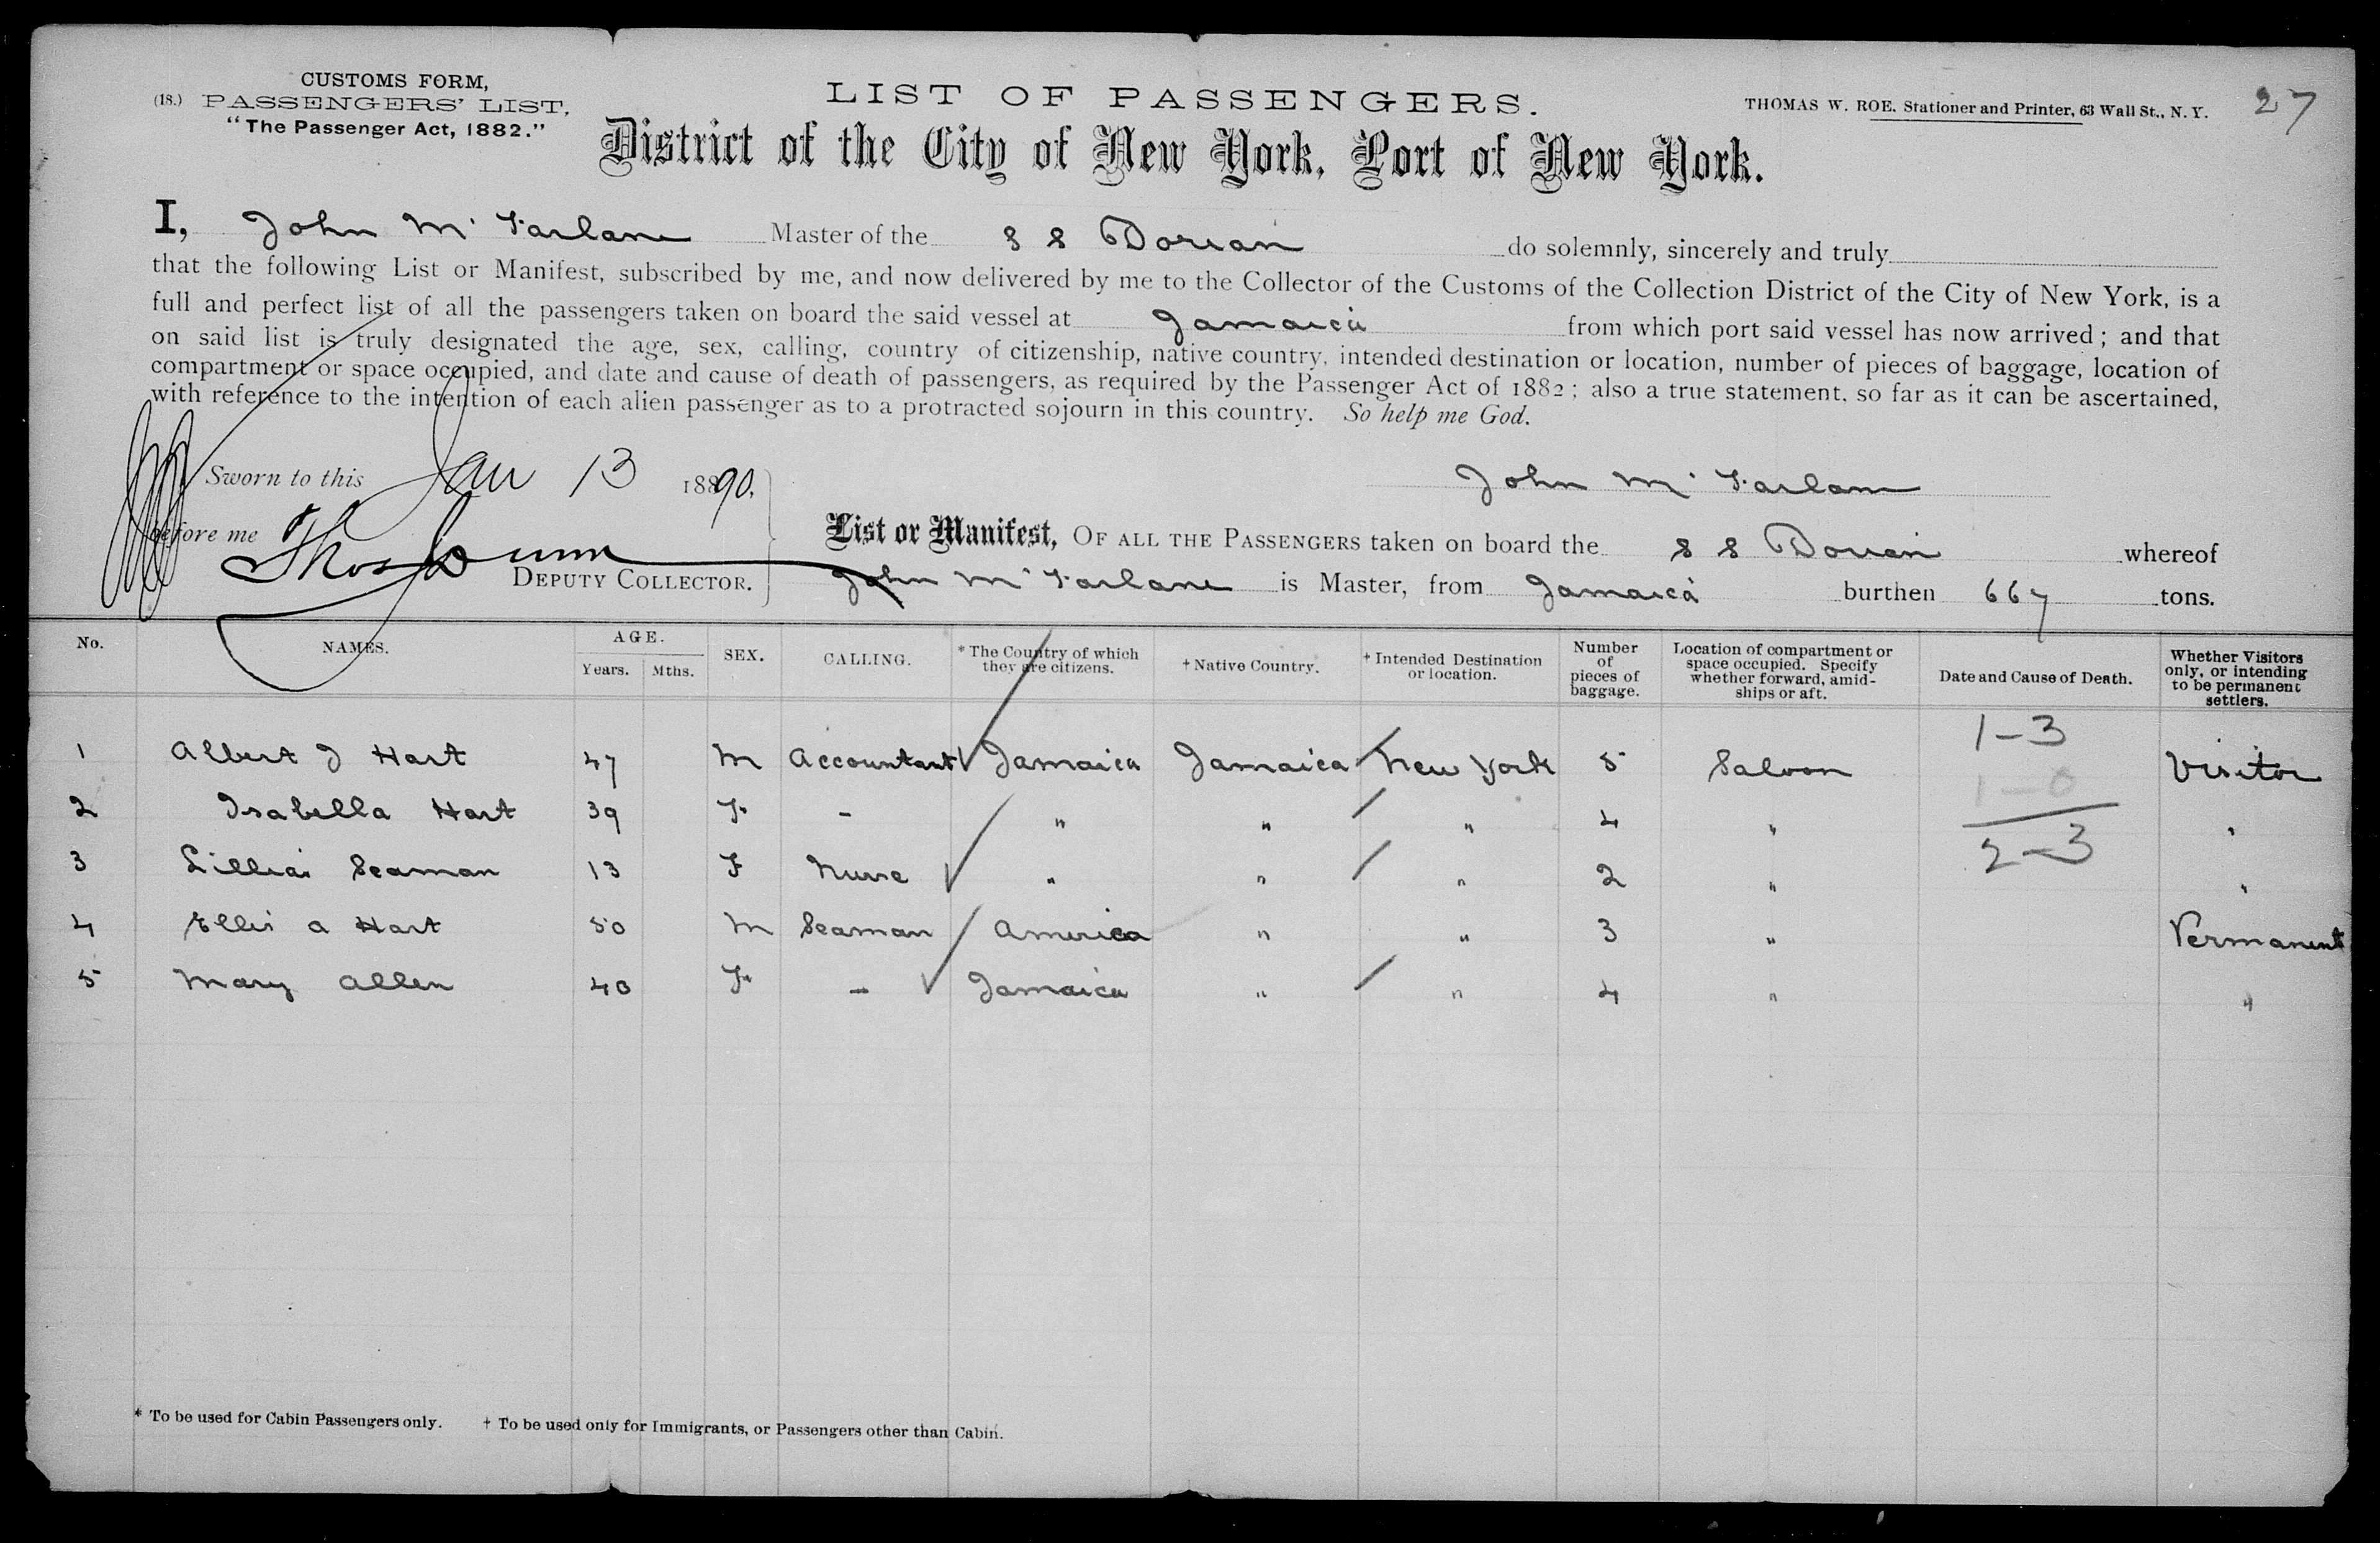 CUSTOMS FORM,
(18.) PASSENGERS' LIST,
"The Passenger Act, 1882."
LIST OF PASSENGERS.
THOMAS W. ROE. Stationer and Printer, 63 Wall St., N. Y.
27
District of the City of New York, Port of New York.
I, John Mc Farlane Master of the S S Dorian do solemnly, sincerely and truly
that the following List or Manifest, subscribed by me, and now delivered by me to the Collector of the Customs of the Collection District of the City of New York, is a
full and perfect list of all the passengers taken on board the said vessel at Jamaica from which port said vessel has now arrived; and that
on said list is truly designated the age, sex, calling, country of citizenship, native country, intended destination or location, number of pieces of baggage, location of
compartment or space occupied, and date and cause of death of passengers, as required by the Passenger Act of 1882; also a true statement, so far as it can be ascertained,
with reference to the intention of each alien passenger as to a protracted sojourn in this country. So help me God.
Sworn to this Jan 13 1890,
John Mc Farlane
before me Thos Dunn
DEPUTY COLLECTOR.
List or Manifest, OF ALL THE PASSENGERS taken on board the S S Dorian whereof
John Mc Farlane is Master, from Jamaica burthen 667 tons.
No. NAMES. AGE. Years. Mths. SEX. CALLING. * The Country of which they are citizens. † Native Country. † Intended Destination or location. Number of pieces of baggage. Location of compartment or space occupied. Specify whether forward, amidships or aft. Date and Cause of Death. Whether Visitors only, or intending to be permanent settlers.
1-3
1 Albert J Hart 47 M Accountant Jamaica Jamaica New York 5 Saloon Visitor
1-0
2 Isabella Hart 39 F - " " " 4 " "
2-3
3 Lillian Seaman 13 F Nurse " " " 2 " "
4 Ellis A Hart 50 M Seaman America " " 3 " Permanent
5 Mary Allen 40 F - Jamaica " " 4 " "
* To be used for Cabin Passengers only. † To be used only for Immigrants, or Passengers other than Cabin.